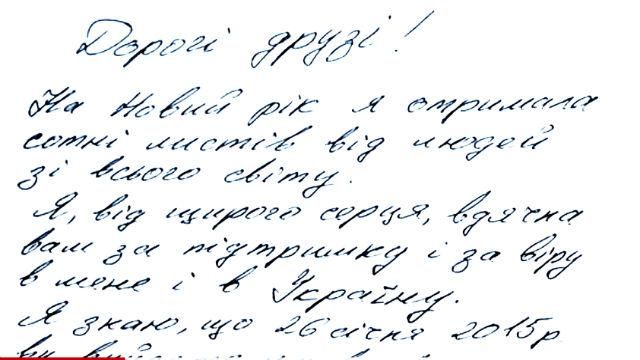 Дорогі друзі!
На Новий рік я отримала
сотні листів від людей
зі всього світу.
Я, від щирого серця, вдячна
вам за підтримку і за віру
в мене і в Україну.
Я знаю, що 26 січня 2015р
ви